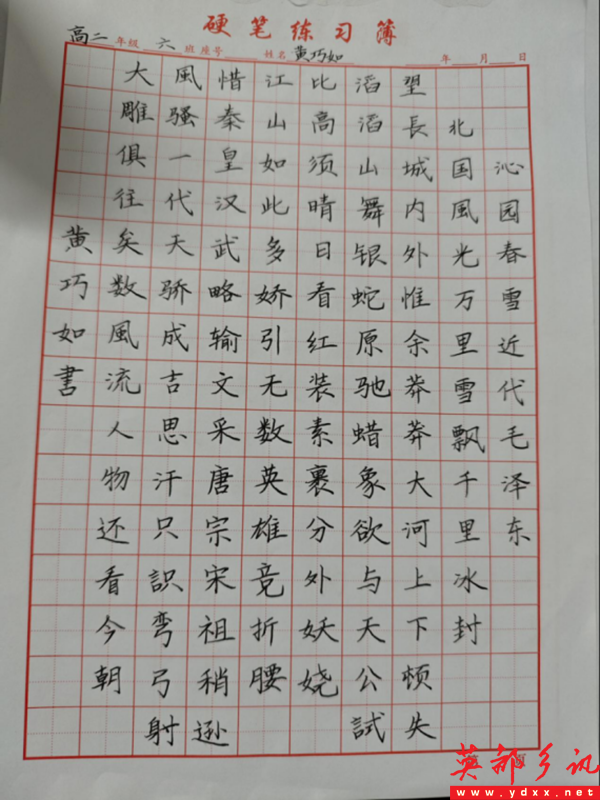 硬笔练习簿
高二年级 六班 座号 姓名 黄巧如 年 月 日
沁园春雪近代毛泽东
北国風光万里雪飘千里冰封
望長城内外惟余莽莽大河上下顿失
滔滔山舞银蛇原驰蜡象欲与天公試
比高须晴日看红装素裹分外妖娆
江山如此多娇引无数英雄竞折腰
惜秦皇汉武略输文采唐宗宋祖稍逊
風骚一代天骄成吉思汗只識弯弓射
大雕俱往矣数風流人物还看今朝
黄巧如書
英都乡讯
www.ydxx.net